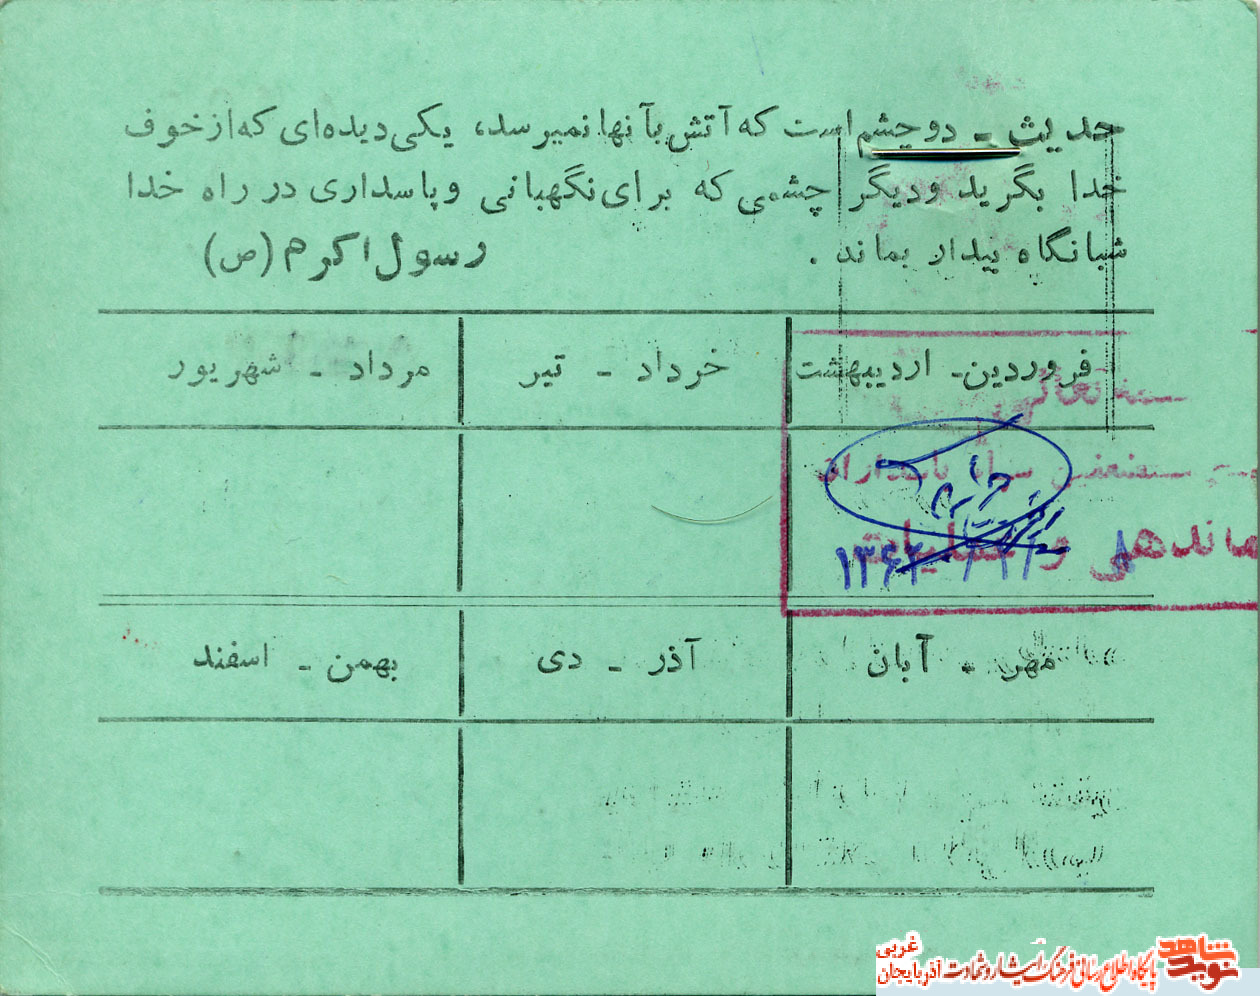 حدیث ـ دوچشم است که آتش بآنها نمیرسد، یکی دیده‌ای که از خوف
خدا بگرید و دیگر چشمی که برای نگهبانی و پاسداری در راه خدا
شبانگاه بیدار بماند .
رسول اکرم (ص)
فروردین ـ اردیبهشت
خرداد ـ تیر
مرداد ـ شهریور
بسمه تعالی
سپاه پاسداران
ماندهی و عملیات
مهر ـ آبان
آذر ـ دی
بهمن ـ اسفند
نوید شاهد
پایگاه اطلاع رسانی فرهنگ ایثار و شهادت آذربایجان غربی